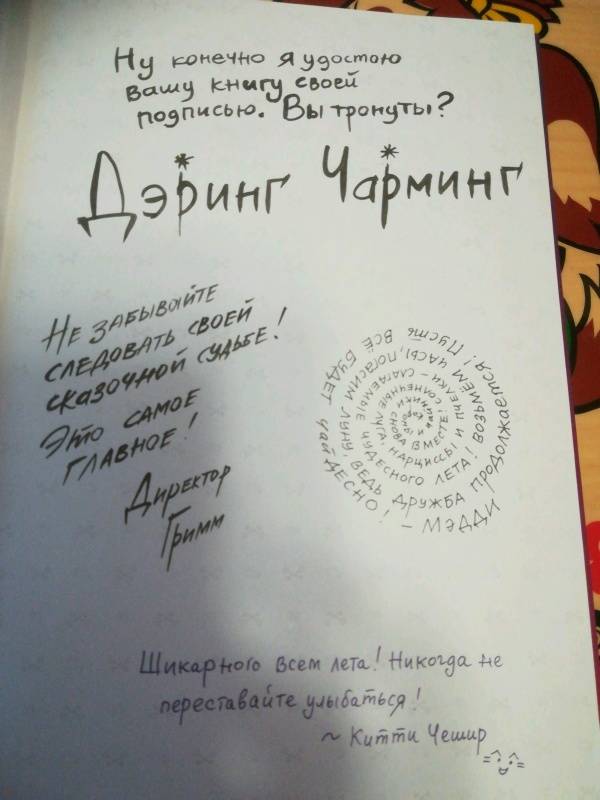 Ну конечно я удостою
вашу книгу своей
подписью. Вы тронуты?
Дэринг Чарминг
НЕ ЗАБЫВАЙТЕ
СЛЕДОВАТЬ СВОЕЙ
СКАЗОЧНОЙ СУДЬБЕ!
ЭТО САМОЕ
ГЛАВНОЕ!
Директор
Гримм
СНОВА ВМЕСТЕ! СОЛНЕЧНЫЕ ЛУГА, НАРЦИССЫ И ПЧЕЛКИ – СЛАГАЕМЫЕ ЧУДЕСНОГО ЛЕТА! ВОЗЬМЕМ ЧАСЫ, ПОГАСИМ ЛУНУ, ВЕДЬ ДРУЖБА ПРОДОЛЖАЕТСЯ! ПУСТЬ ВСЁ БУДЕТ ЧАЙДЕСНО! – МЭДДИ
Шикарного всем лета! Никогда не
переставайте улыбаться!
~ Китти Чешир